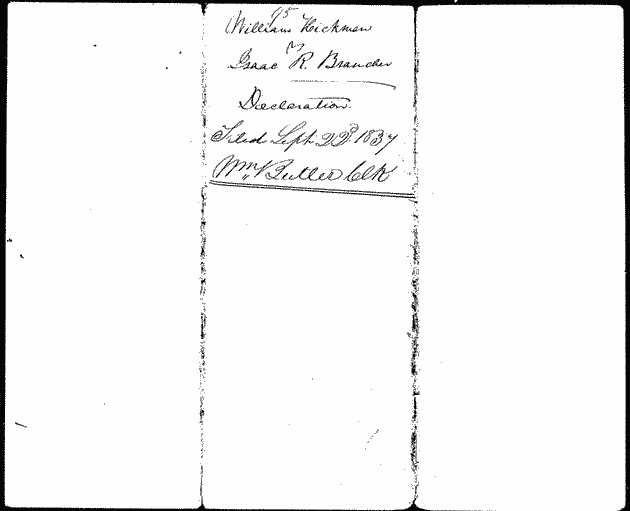 95
William Hickman
vs
Isaac R. Brauder
Declaration.
Filed Sept. 22d. 1837
Wm Butler Clk